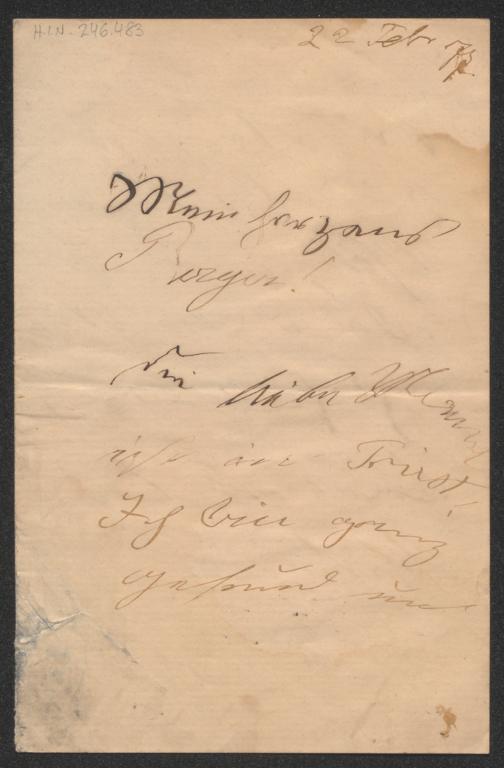 H.I.N. 246.483
22 Febr 72.
Mein herzens
Berger!
Die liebe Mama
ist in Triest!
Ich bin ganz
gesund und